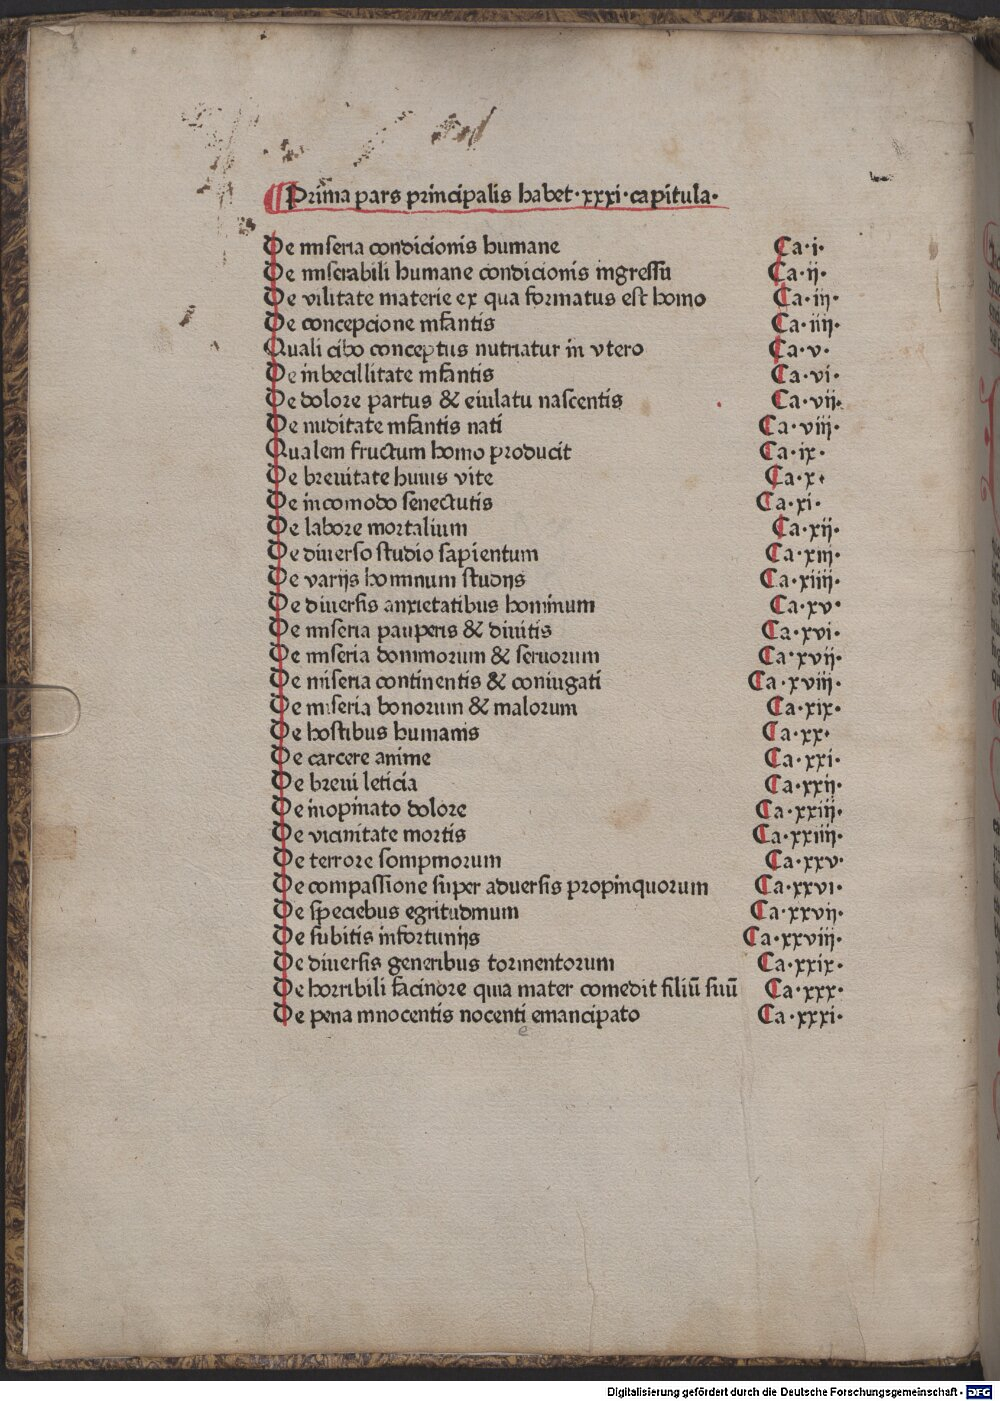 Prima pars principalis habet·xxxi·capitula·
De miseria condicionis humane Ca·i·
De miserabili humane condicionis ingressu Ca·ii·
De vilitate materie ex qua formatus est homo Ca·iii·
De concepcione infantis Ca·iiii·
Quali cibo conceptus nutriatur in vtero Ca·v·
De inbecillitate infantis Ca·vi·
De dolore partus & eiulatu nascentis Ca·vii·
De nuditate infantis nati Ca·viii·
Qualem fructum homo producit Ca·ix·
De breuitate huius vite Ca·x·
De incomodo senectutis Ca·xi·
De labore mortalium Ca·xii·
De diuerso studio sapientum Ca·xiii·
De varijs hominum studijs Ca·xiiii·
De diuersis anxietatibus hominum Ca·xv·
De miseria pauperis & diuitis Ca·xvi·
De miseria dominorum & seruorum Ca·xvii·
De miseria continentis & coniugati Ca·xviii·
De miseria bonorum & malorum Ca·xix·
De hostibus humanis Ca·xx·
De carcere anime Ca·xxi·
De breui leticia Ca·xxii·
De inopinato dolore Ca·xxiii·
De vicinitate mortis Ca·xxiiii·
De terrore sompniorum Ca·xxv·
De compassione super aduersis propinquorum Ca·xxvi·
De speciebus egritudinum Ca·xxvii·
De subitis infortunijs Ca·xxviii·
De diuersis generibus tormentorum Ca·xxix·
De horribili facinore quia mater comedit filiū suū Ca·xxx·
De pena innocentis nocenti emancipato Ca·xxxi·
e
Digitalisierung gefördert durch die Deutsche Forschungsgemeinschaft - DFG